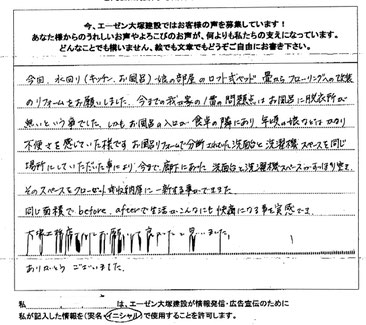 今、エーゼン大塚建設ではお客様の声を募集しています！
あなた様からのうれしいお声やよろこびのお声が、何よりも私たちの支えになっています。
どんなことでも構いません、絵でも文章でもどうぞご自由にお書き下さい。
今回、水回り(キッチン、お風呂)、娘の部屋のロフト式ベッド、畳からフローリングへの改装
のリフォームをお願いしました。今までの我が家の1番の問題点はお風呂に脱衣所が
無いという事でした。しかもお風呂の入口が食卓の隣にあり、年頃の娘などはかなり
不便さを感じていた様です。お風呂リフォームで分断された洗面台と洗濯機スペースを同じ
場所にしていただいた事により、今まで廊下にあった洗面台と洗濯機スペースがすっぽり空き、
そのスペースをクローゼット式収納庫に一新する事ができました。
同じ面積でbefore、afterで生活がこんなにも快適になる事を実感でき、
大塚工務店さんにお願いして良かったと
ありがとうございました。
私 は、エーゼン大塚建設が情報発信・広告宣伝のために
私が記入した情報を(実名・イニシャル)で使用することを許可します。